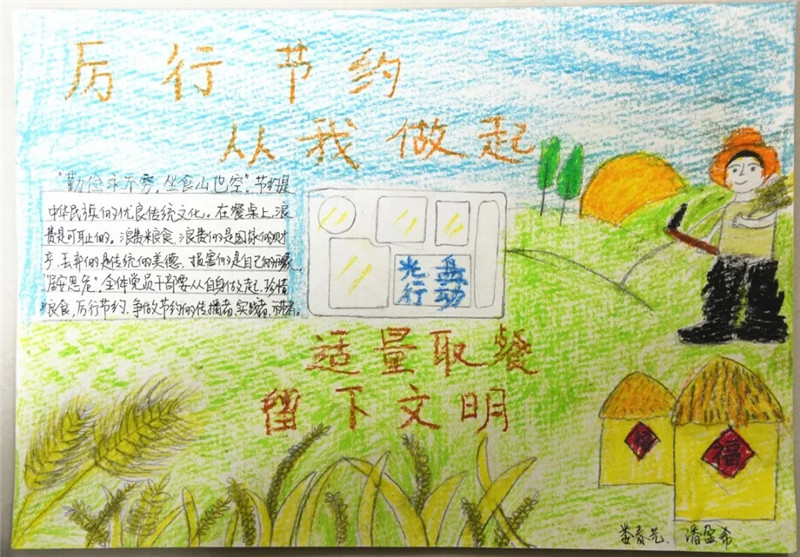 厉行节约
从我做起
"勤俭永不穷,坐食山也空"。节约是
中华民族的优良传统文化。在餐桌上,浪
费是可耻的。浪费粮食,浪费的是国家的财
产,丢弃的是传统的美德,损害的是自己的形象
"居安思危",全体党员干部要从自身做起,珍惜
粮食,厉行节约,争做节约的传播者,实践者,示范者。
光盘
行动
适量取餐
留下文明
福
福
潘盈希